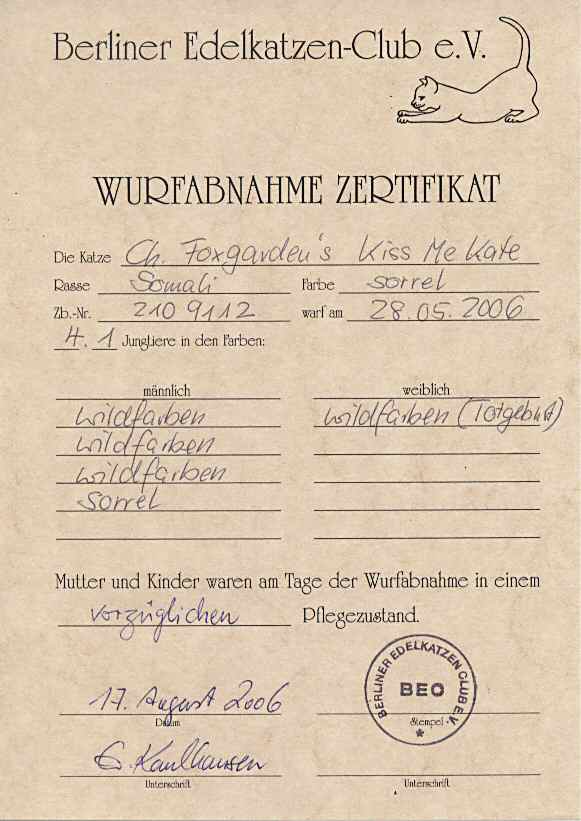 Berliner Edelkatzen-Club e.V.
WURFABNAHME ZERTIFIKAT
Die Katze Ch. Foxgarden's Kiss Me Kate
Rasse Somali Farbe sorrel
Zb.-Nr. 210 9112 warf am 28.05.2006
4. 1 Jungtiere in den Farben:
männlich weiblich
wildfarben wildfarben (Totgeburt)
wildfarben
wildfarben
sorrel
Mutter und Kinder waren am Tage der Wurfabnahme in einem
vorzüglichen Pflegezustand.
BERLINER EDELKATZEN CLUB E.V.
BEO
17. August 2006
Datum Stempel
G. Kaulhausen
Unterschrift Unterschrift